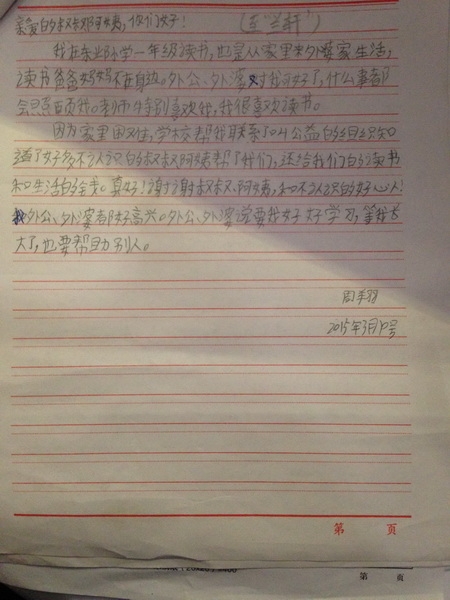 亲爱的叔叔阿姨,你们好!
我在 小学一年级读书,也是从家里来外婆家生活,
读书爸爸妈妈不在身边。外公、外婆对我可好了,什么事都
会照顾我。老师特别喜欢我,我很喜欢读书。
因为家里困难,学校帮我联系了 公益的组织知
道了好多不认识的叔叔阿姨帮了我们,还给我们的读书
和生活的 。真好!谢谢叔叔、阿姨,和不认识的好心人!
我外公、外婆都好高兴。外公、外婆说要我好好学习,等我长
大了,也要帮助别人。
2015年3月 号
第 页
第 页